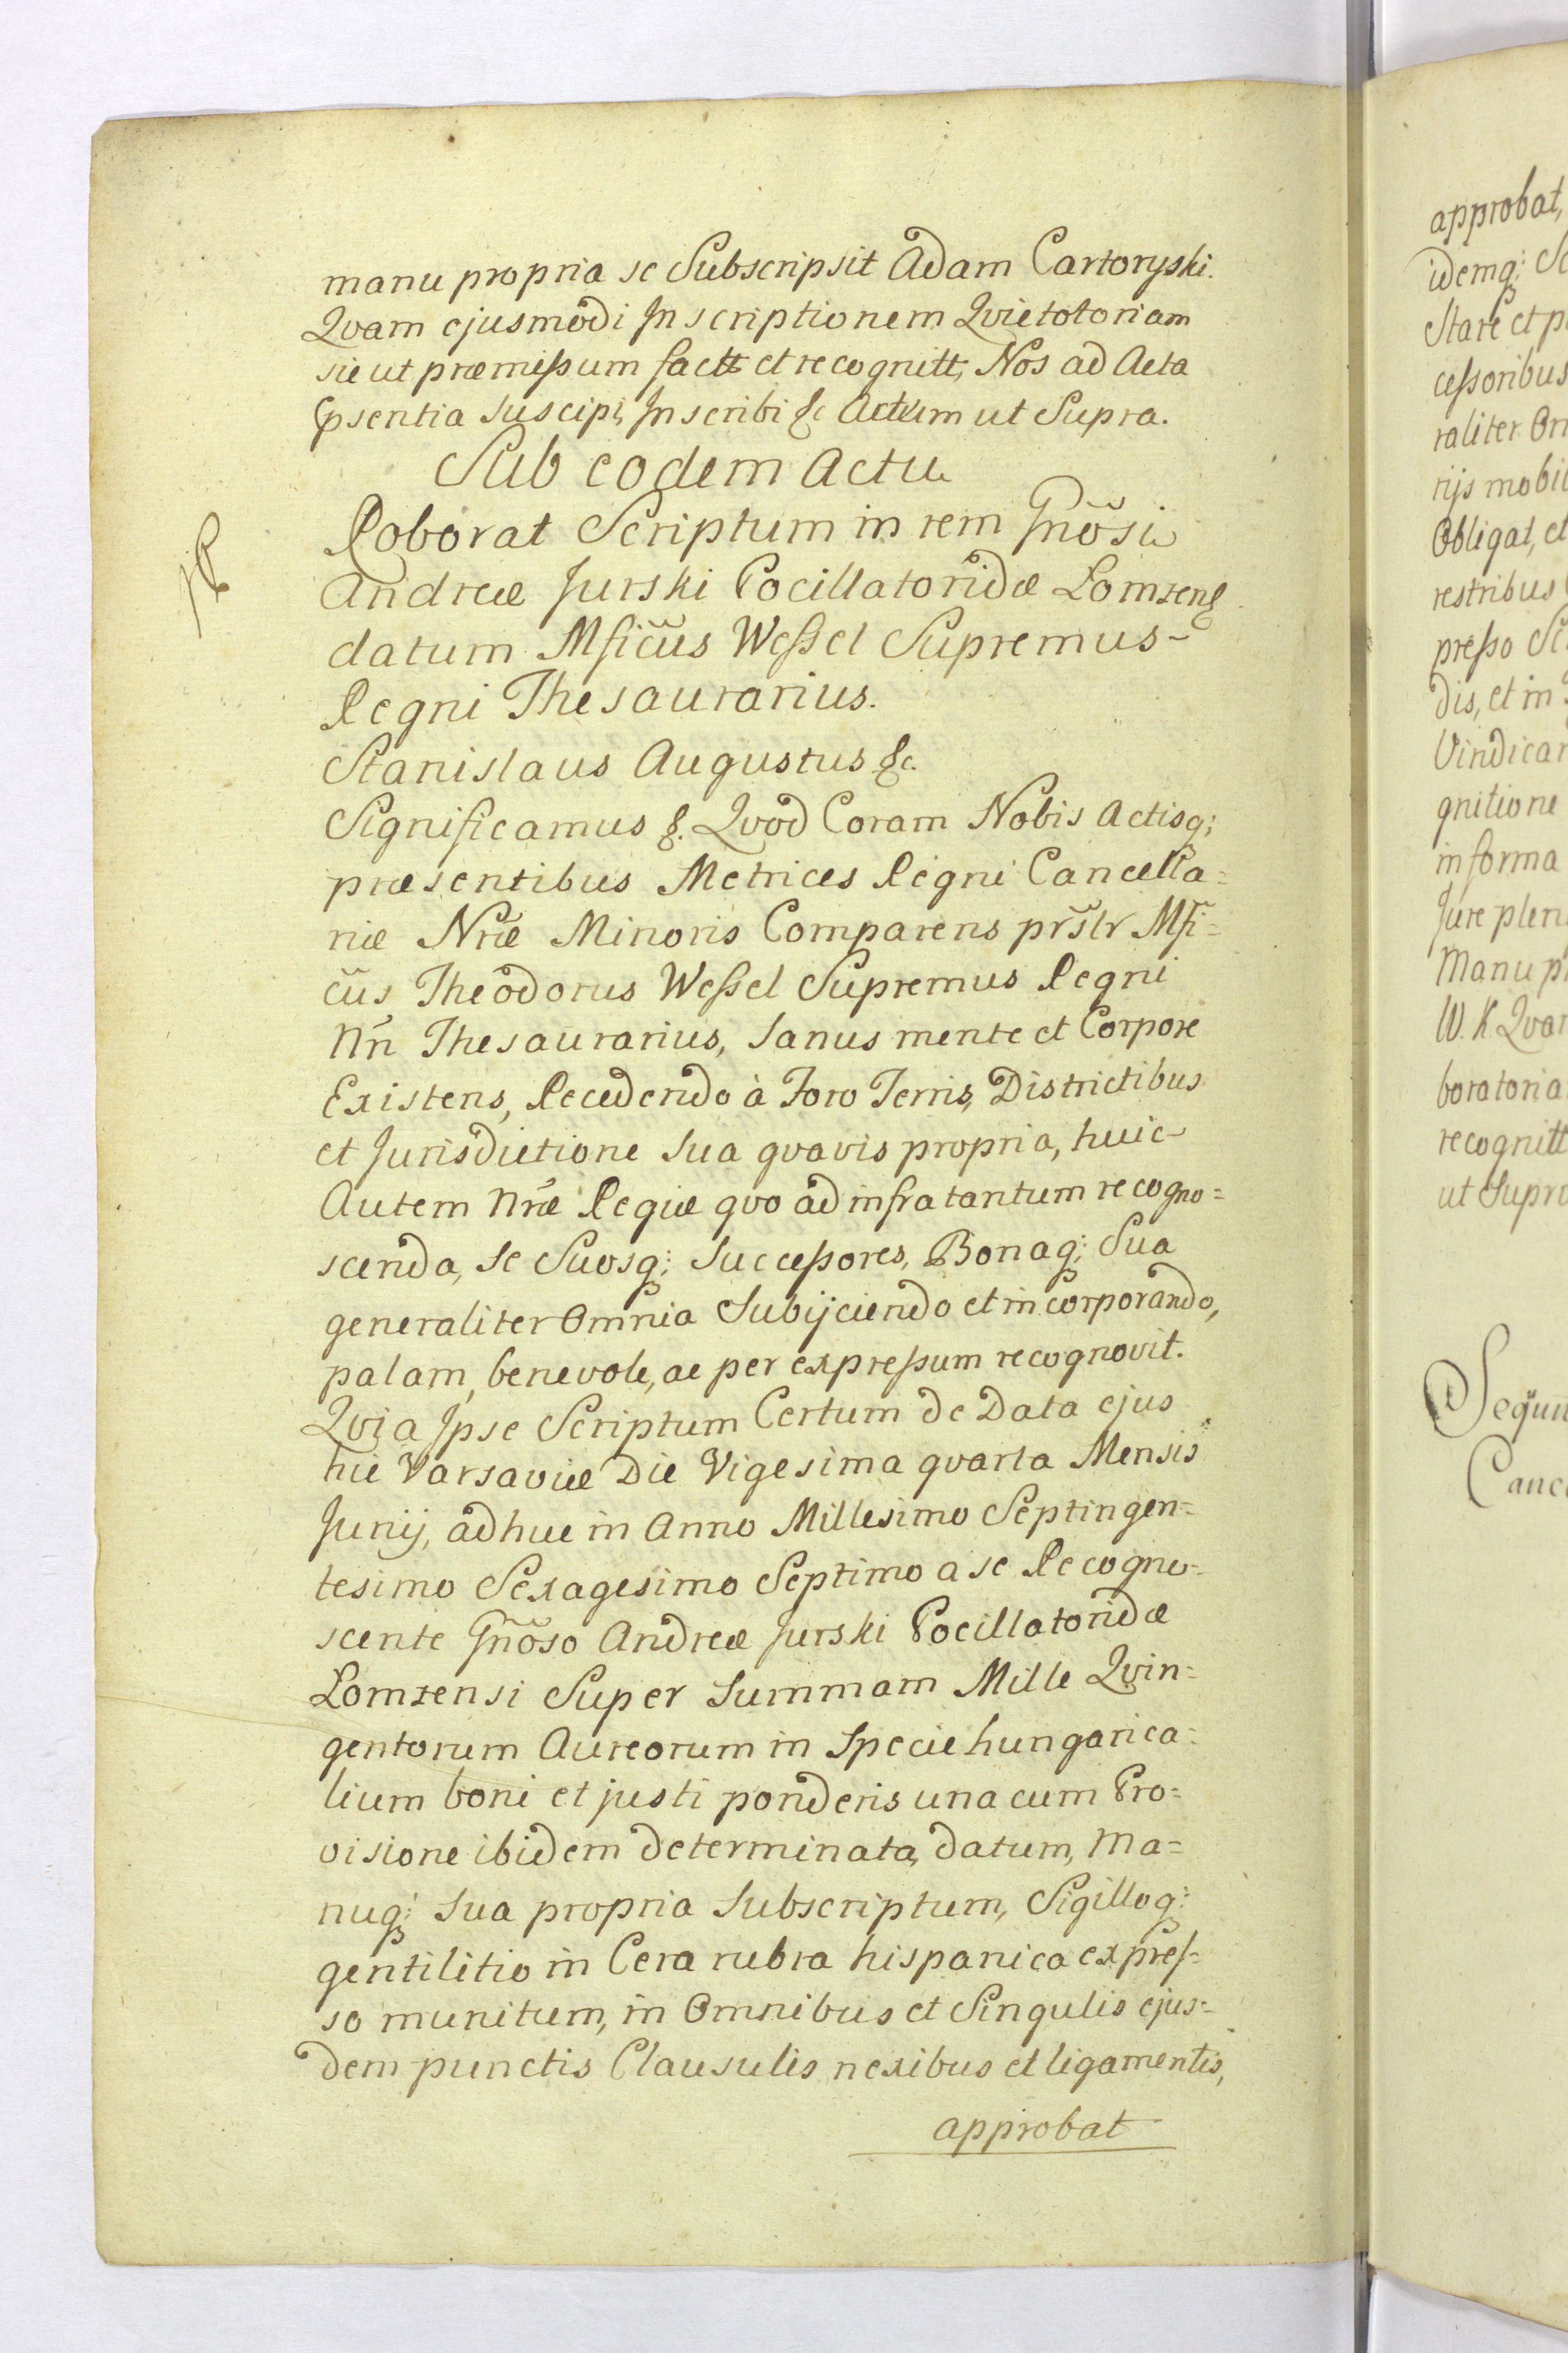 manu propria se Subscripsit Adam Cartoryski.
Qvam ejusmodi Inscriptionem Qvietotoriam
sic ut præmissum factt et recognitt, Nos ad Acta
psentia suscipi, Inscribi &c Actum ut Supra.
Sub eodem Actu
Roborat Scriptum in rem Gnõsi
Andreæ Jurski Pocillatoridæ Lomzens
datum Mficus Wessel Supremus
Regni Thesaurarius.
Stanislaus Augustus &c.
Significamus &. Qvod Coram Nobis Actisq;
præsentibus Metrices Regni Cancella=
riæ Nræ Minoris Comparens prsltr Mfi=
cus Theodorus Wessel Supremus Regni
Nri Thesaurarius, sanus mente et Corpore
Existens, Recedendo à Foro Terris, Districtibus
et Jurisdictione sua qvavis propria, huic
Autem Nræ Regiæ qvo ad infra tantum recogno=
scenda, se Suosq; Successores, Bonaq; Sua
generaliter Omnia Subijciendo et incorporando,
palam, benevole, ac per expressum recognovit.
Qvia Ipse Scriptum Certum de Data ejus
hic Varsaviæ Die Vigesima qvarta Mensis
Junij, adhuc in Anno Millesimo Septingen=
tesimo Sexagesimo Septimo a se Recogno=
scente Gnõso Andreæ Jurski Pocillatoridæ
Lomzensi Super summam Mille Qvin=
gentorum Aureorum in Specie hungarica=
lium boni et justi ponderis una cum Pro=
visione ibidem determinata, datum, Ma=
nuq; sua propria subscriptum, Sigilloq;
gentilitio in Cera rubra hispanica expres=
so munitum, in Omnibus et Singulis ejus=
dem punctis Clausulis nexibus et ligamentis,
approbat
approbat,
idemq; Se
Stare et p
cessoribus
raliter Om
rijs mobil
Obligat, et
restribus
presso Sc
dis, et in
Vindicar
gnitione
in forma
Jure plen
Manu pr
W. K. Qvar
boratoria
recognitt
ut Supra
Sequn
Canc